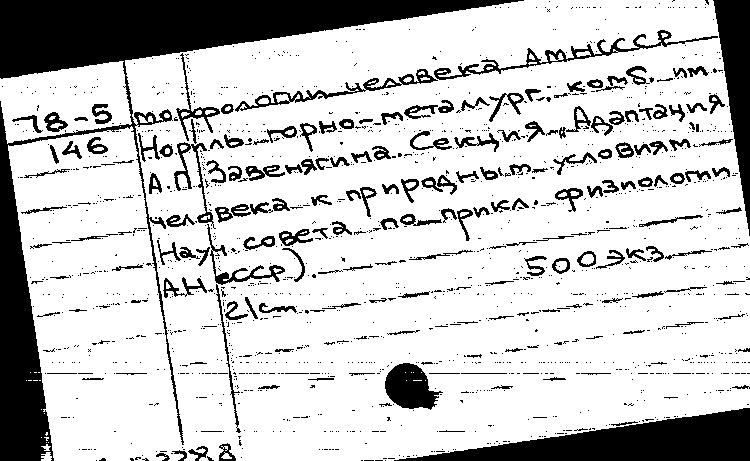 78-5
146
морфологии человека АМНСССР
Нориль. горно-металлург. комб. им.
А.П. Завенягина. Секция „Адаптация
человека к природным условиям"
Науч. совета по прикл. физиологии
АН СССР).
500 экз.
21cm.